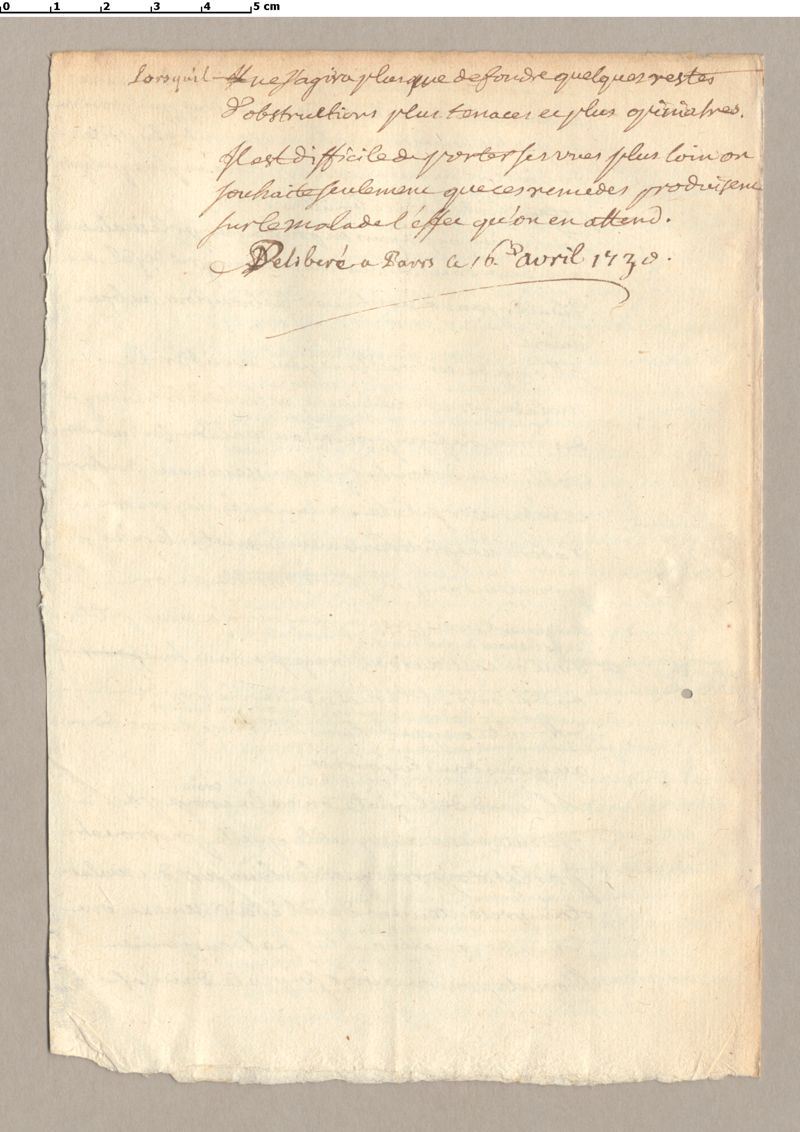 0 1 2 3 4 5 cm
Lorsquil ne s'agira plus que de fondre quelques restes
d'obstructions plus tenaces et plus opiniatres.
Il est difficile de porter ses vues plus loin on
souhaite seulement que ces remedes produisent
sur le malade l'éffet qu'on en attend.
Deliberé a Paris ce 16 avril 1730.